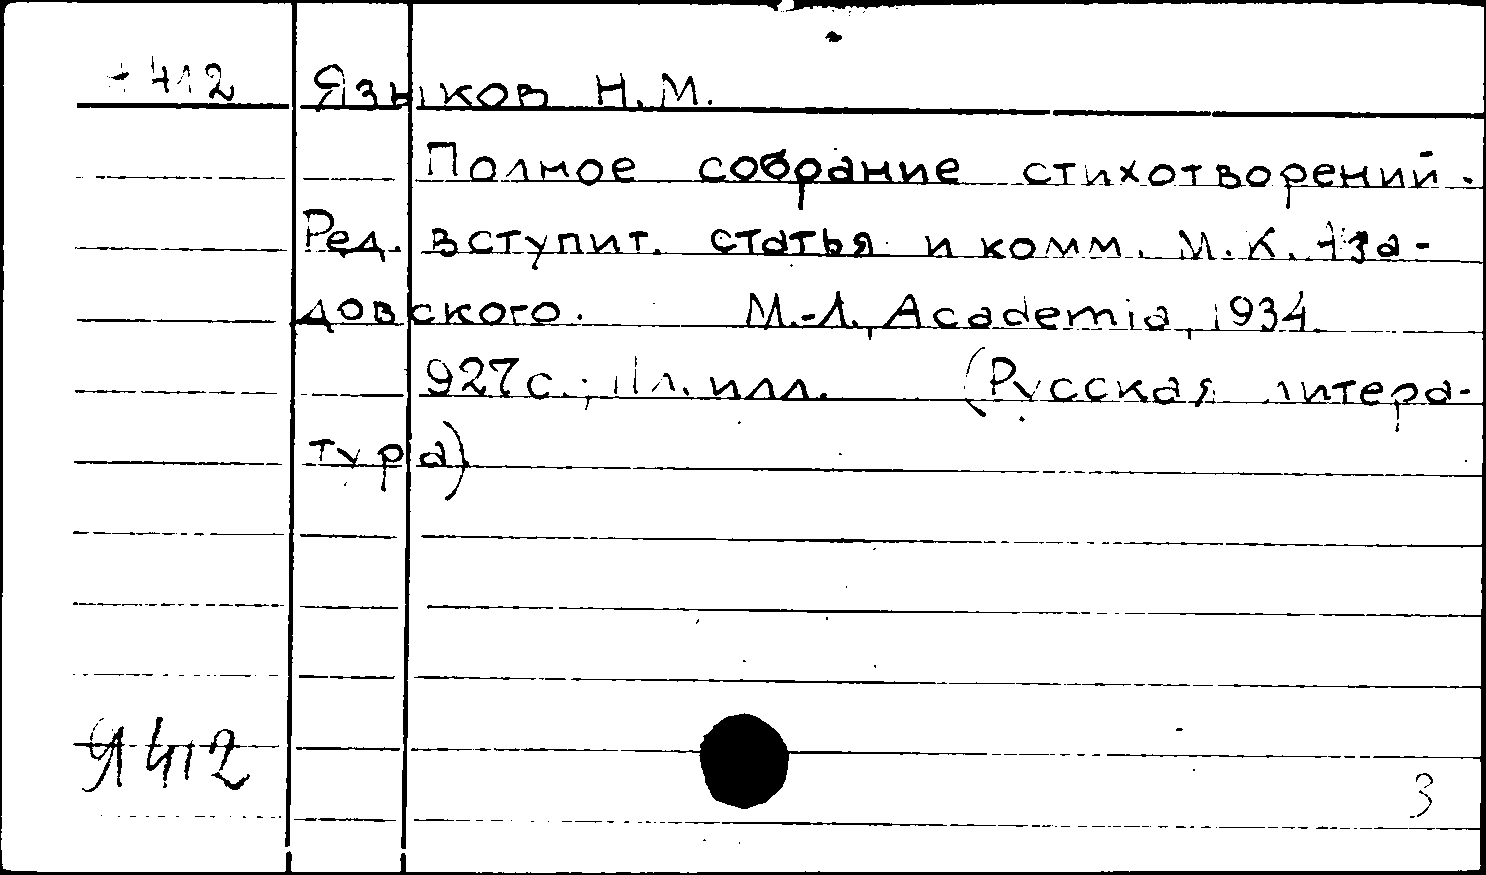 412 Языков Н.М.
Полное собрание стихотворений.
Ред. вступит. статья и комм. М.К. Аза-
довского. М.-Л., Academia, 1934.
927с.; 11л. илл. (Русская литера-
тура)
Я412
3